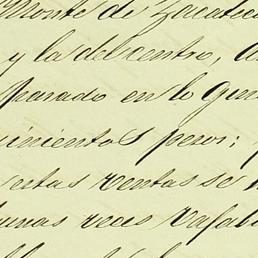 Monte de Zacatec
y la del centro, a
parado en lo Gen
inientos pesos;
estas rentas se
unas veces rafa